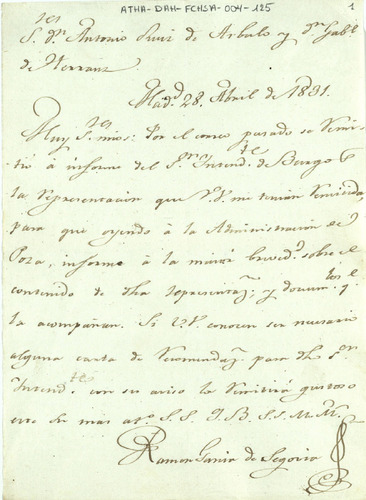 ATHA-DAH-FCHSA-004-125
1
S.res Dn. Antonio Ruiz de Arbulo y Dn. Gabl.
de Herraiz
Mad.d 28. Abril de 1831.
Muy S.res mios: Por el correo pasado se remi-
tió à informe del S.or Intend.te de Burgos
la representacion que V.V. me tenian remitida,
para que oyendo à la Administracion de
Poza, informe à la mayor breved.d sobre el
contenido de dha representaz.n y docum.tos q.e
la acompañan. Si VV. conocen ser necesario
alguna carta de recomendaz.n para dho S.or
Intend.te con su aviso la remitirá gustoso
este su mas at.o S. S. Q. B. S. S. M. M.
Ramon Garcia de Segovia